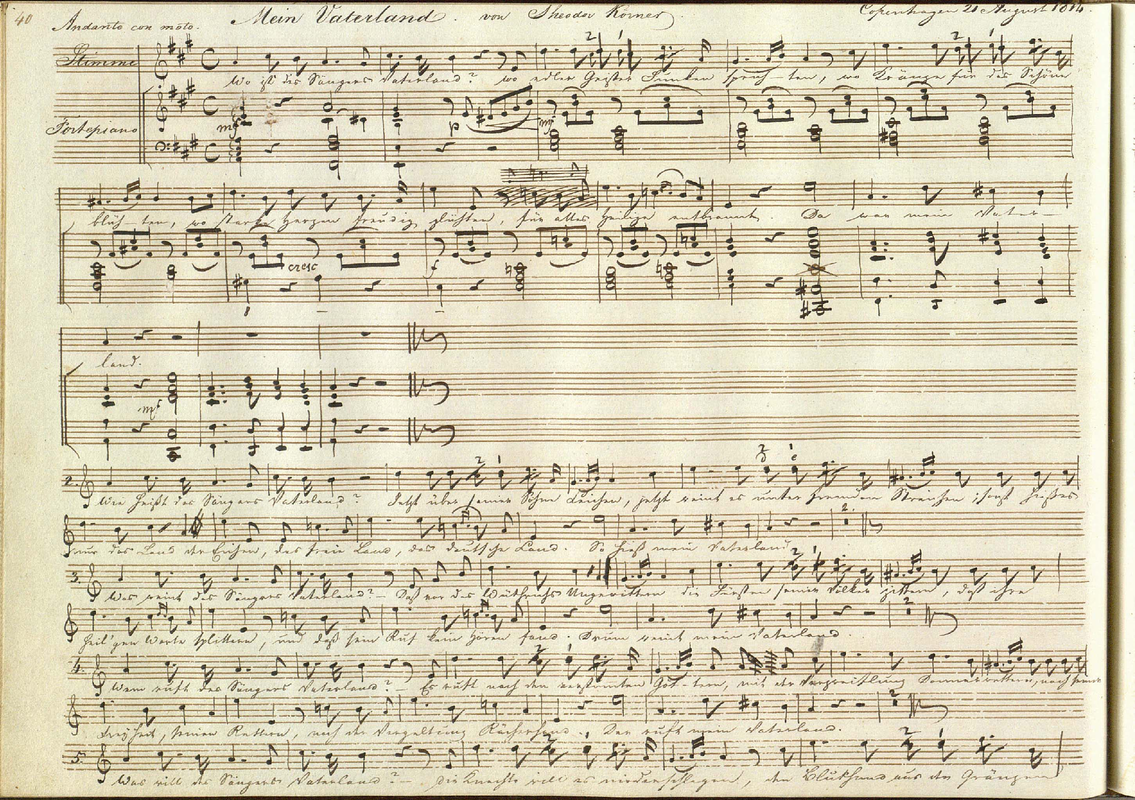 40
Andante con moto. Mein Vaterland. von Theodor Körner. Copenhagen 21 August 1814.
Stimme
Wo ist des Sängers Vaterland? wo edler Geister Funken sprüh-ten, wo Kränze für das Schöne
Fortepiano
mf p mf
blüh-ten, wo starke Herzen freudig glühten, für alles Heilige entbrannt. Da war mein Vater-
cresc f
land.
mf
2. Wie heißt des Sängers Vaterland? Jetzt über seiner Söhne Leichen, jetzt weint es unter fremden Streichen; sonst hieß es
nur das Land der Eichen, das freie Land, das deutsche Land. So hieß mein Vaterland.
3. Was weint des Sängers Vaterland? – Daß vor des Wüthrichs Ungewittern die Fürsten seiner Völker zittern, daß ihre
heil'gen Worte splittern, und daß sein Ruf kein Hören fand. Drum weint mein Vaterland.
4. Wem ruft des Sängers Vaterland? – Es ruft nach den verstummten Göt-tern, mit der Verzweiflung Donnerwettern, nach seiner
Freiheit, seinen Rettern, nach der Vergeltung Rächerhand. Dem ruft mein Vaterland.
5. Was will des Sängers Vaterland? – die Knechte will es niederschlagen, den Bluthund aus den Gränzen